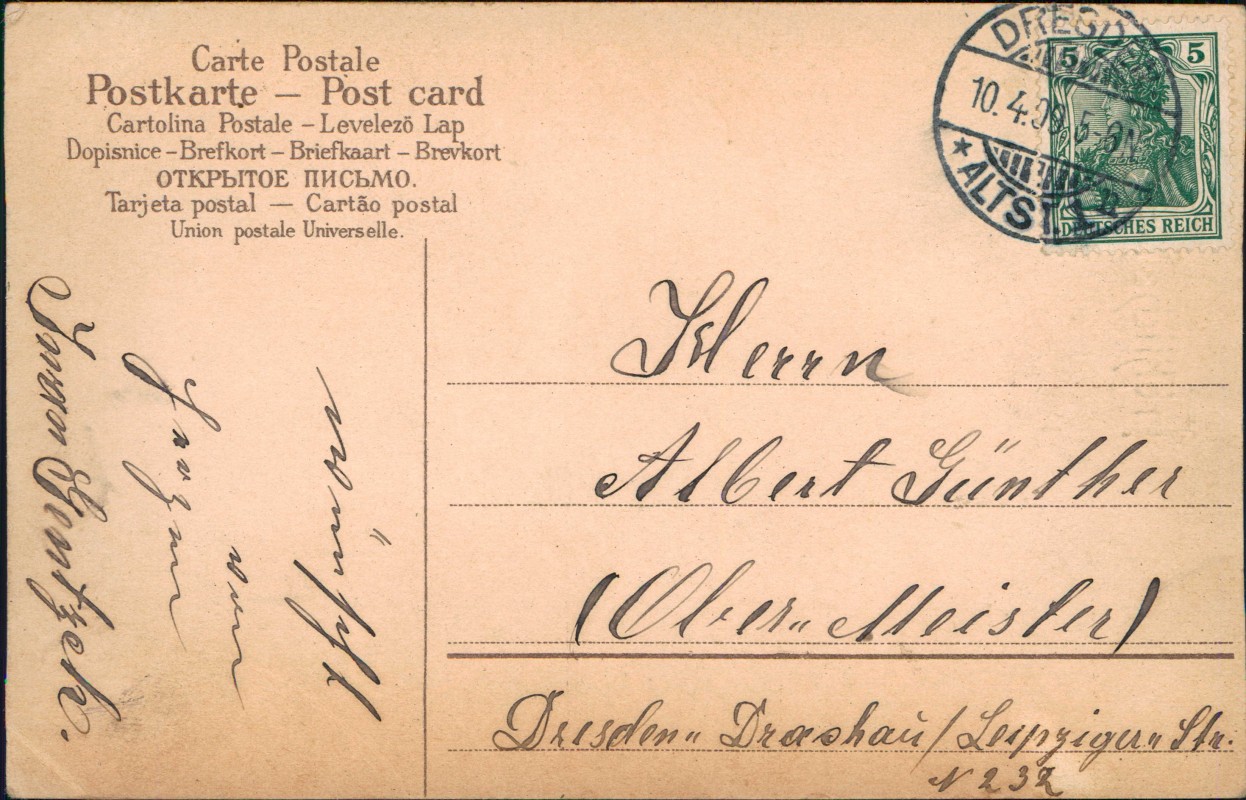 Carte Postale
Postkarte – Post card
Cartolina Postale – Levelező Lap
Dopisnice – Brefkort – Briefkaart – Brevkort
ОТКРЫТОЕ ПИСЬМО.
Tarjeta postal — Cartão postal
Union postale Universelle.
DRESD
10.4.09. 5-6N.
* ALTST. 1
5 5
DEUTSCHES REICH
Herrn
Albert Günther
(Ober„ Meister)
Dresden„ Drachau/Leipziger„ Str.
N 232
wünscht
von
Herzen